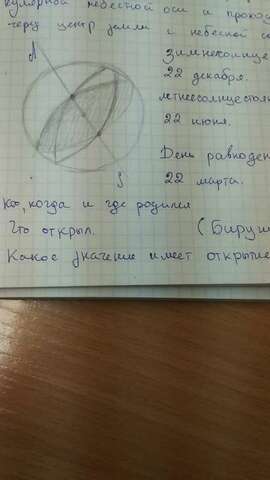 кулярной небесной оси и прохо
через центр земли с небесной с
N
зимнее солнце
22 декабря.
летнеесолнцестоя
22 июня.
День равноден
S
22 марта.
когда и где родился
Что открыл. (Бируш
Какое значение имеет открытие